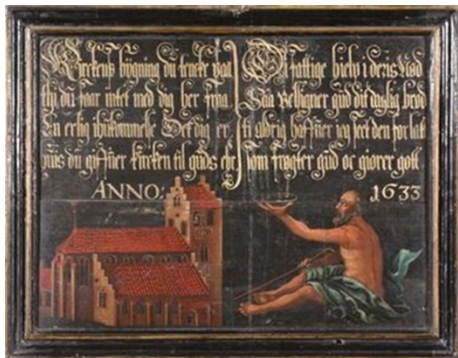 Kirckens bÿgning du tencke paa
thi du faar intet med dig her fraa
En erlig ihukommelse Det dig er
hüis du giffuer kircken til guds ehr
Oc fattige hielp i deris Nød
Saa Velsigner gud dit daglig brød
ti aldrig haffuer ieg seet den forlat
som frÿgter gud oc giører gott
ANNO: 1633